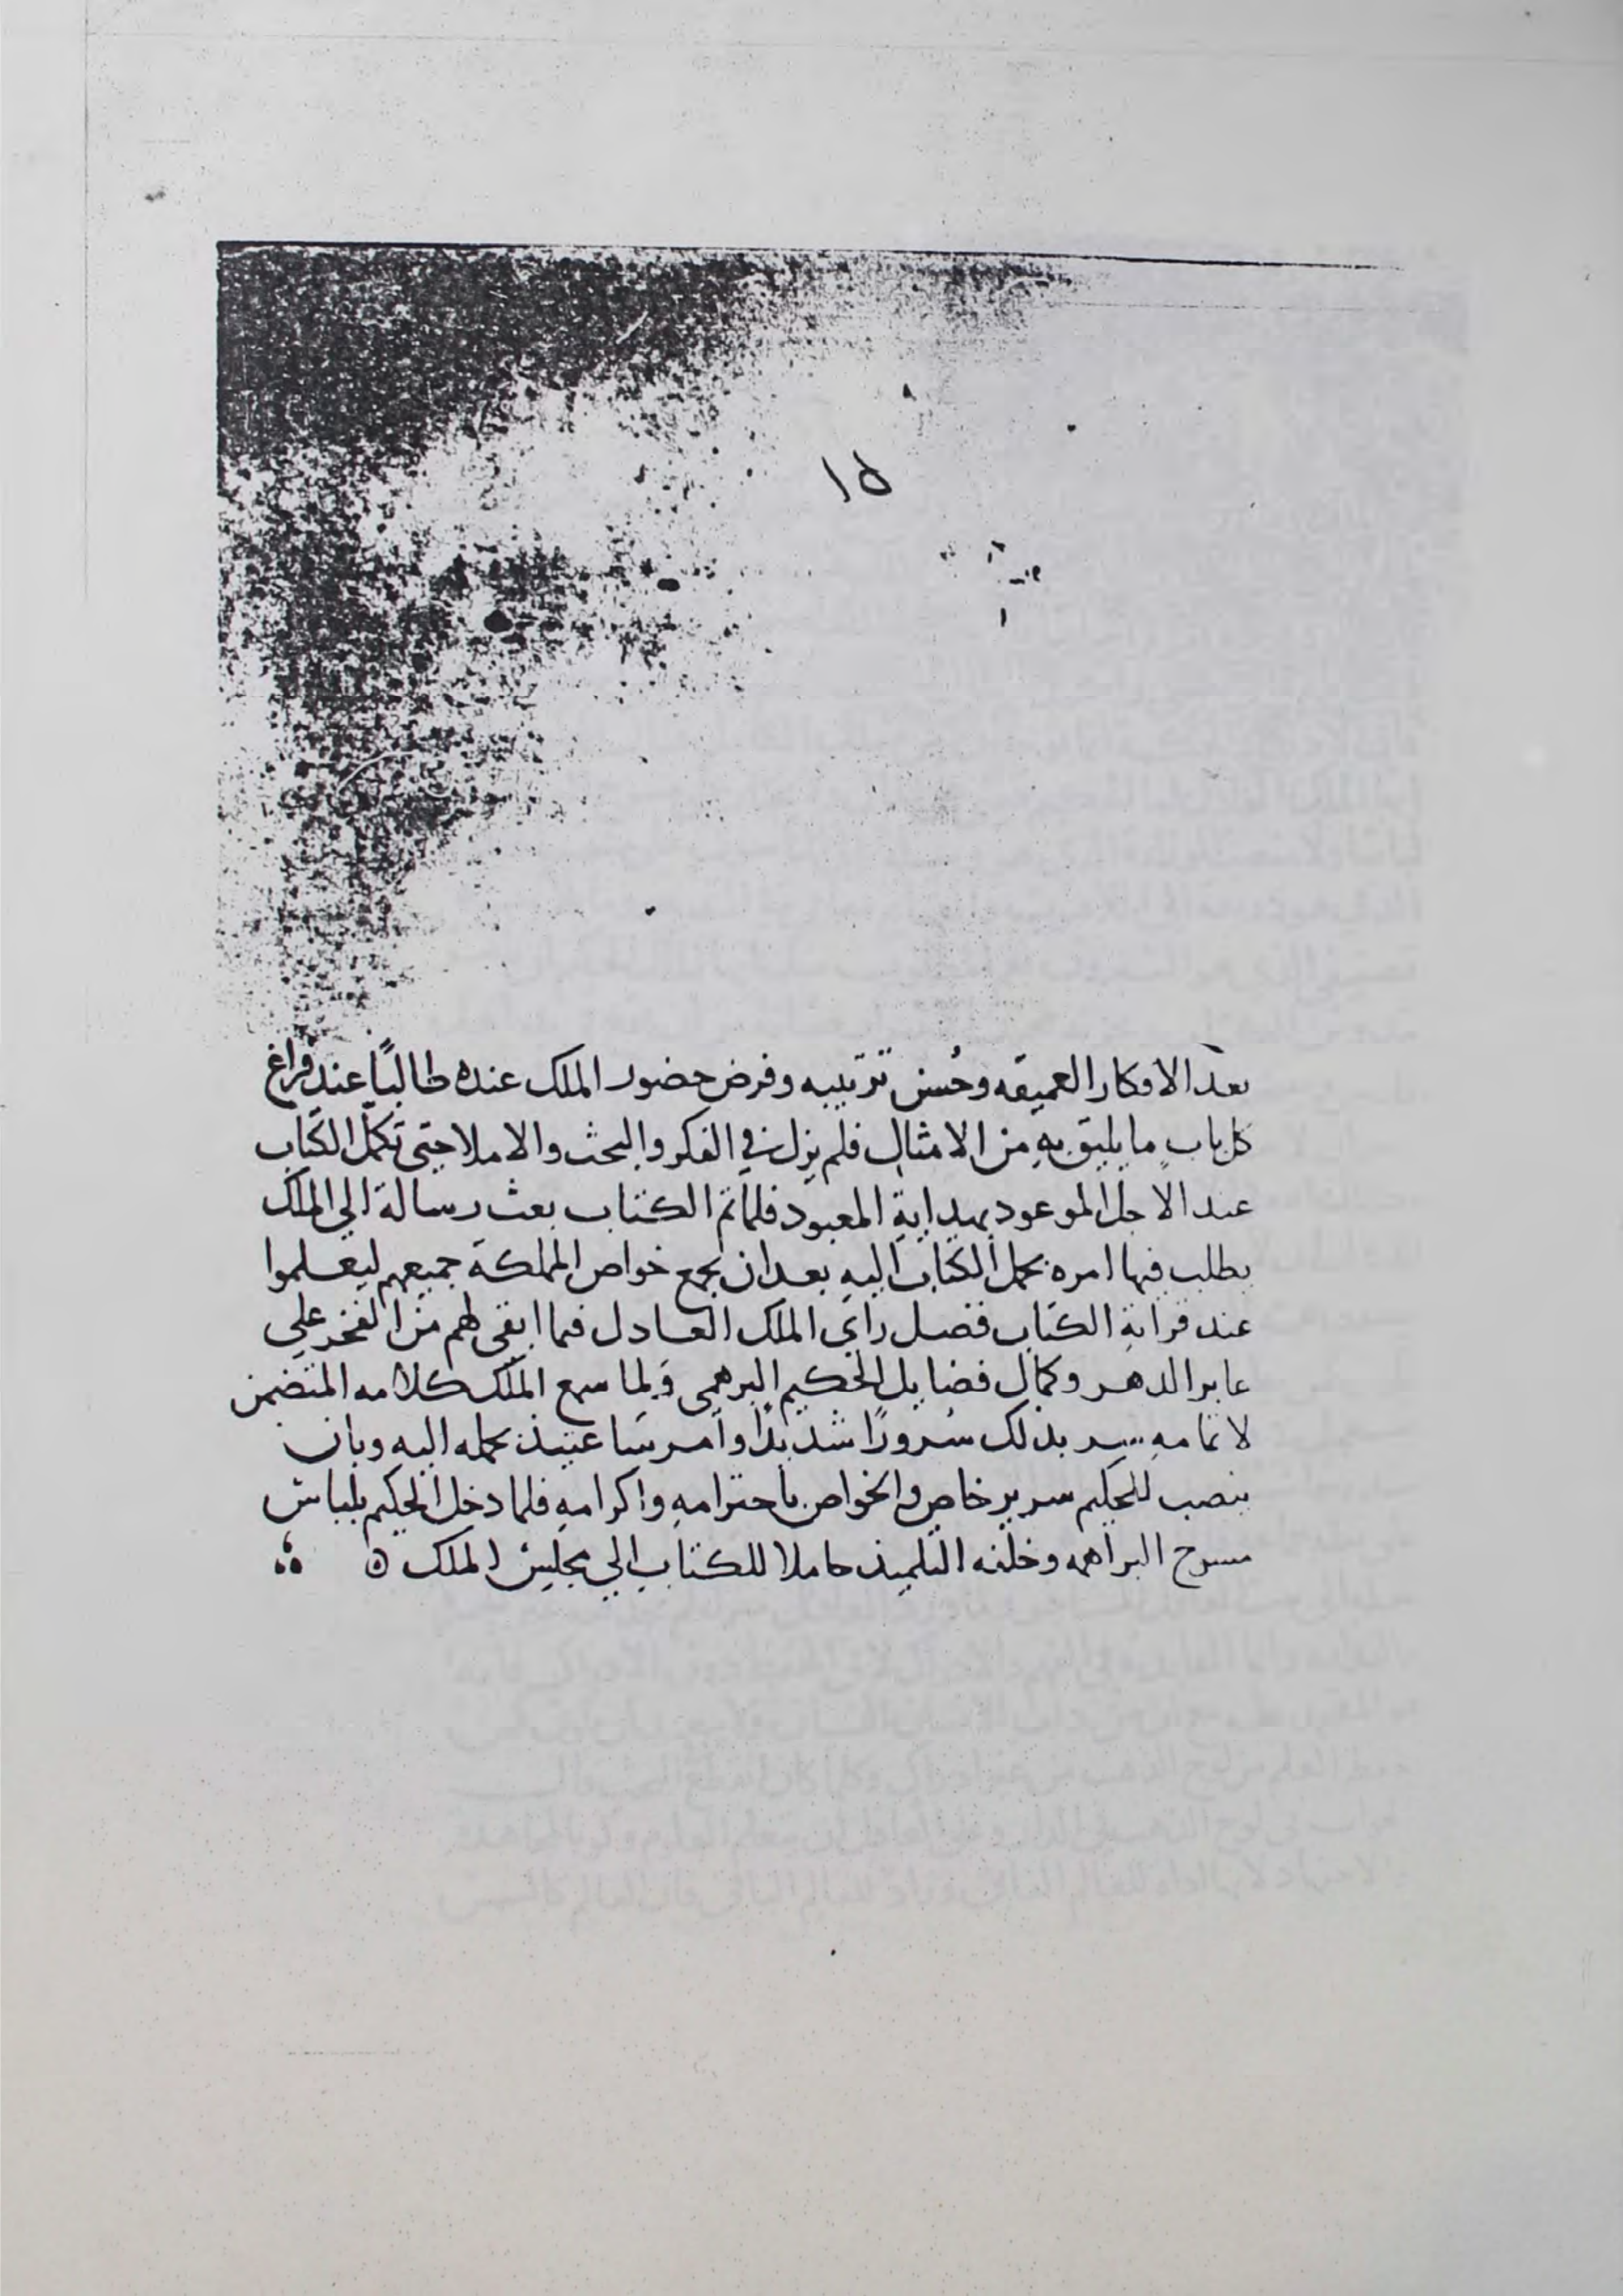 ١٥
بعد الافكار العميقه وحُسن ترتيبه وفرض حضور الملك عنده طالبًا عند فراغ
كل باب ما يليق به من الامثال فلم يزل في الفكر والبحث والاملا حتى تكمّل الكتاب
عند الاجل الموعود بهداية المعبود فلما تم الكتاب بعث رسالة الي الملك
يطلب فيها امره بحمل الكتاب اليه بعد ان يجمع خواص المملكة جميعهم ليعلموا
عند قراة الكتاب فضل راي الملك العادل فما ابقى لهم من الفخر علي
عابر الدهر وكمال فضايل الحكيم البرهمي ولما سمع الملك كلامه المتضمن
لاتمامه سر بذلك سُرورًا شديدًا وامر ساعتيذ بحمله اليه وبان
ينصب للحكيم سرير خاص والخواص باحترامه واكرامه فلما دخل الحكيم بلباس
مسوح البراهمه وخلفه التلميذ حاملا للكتاب الي مجلس الملك